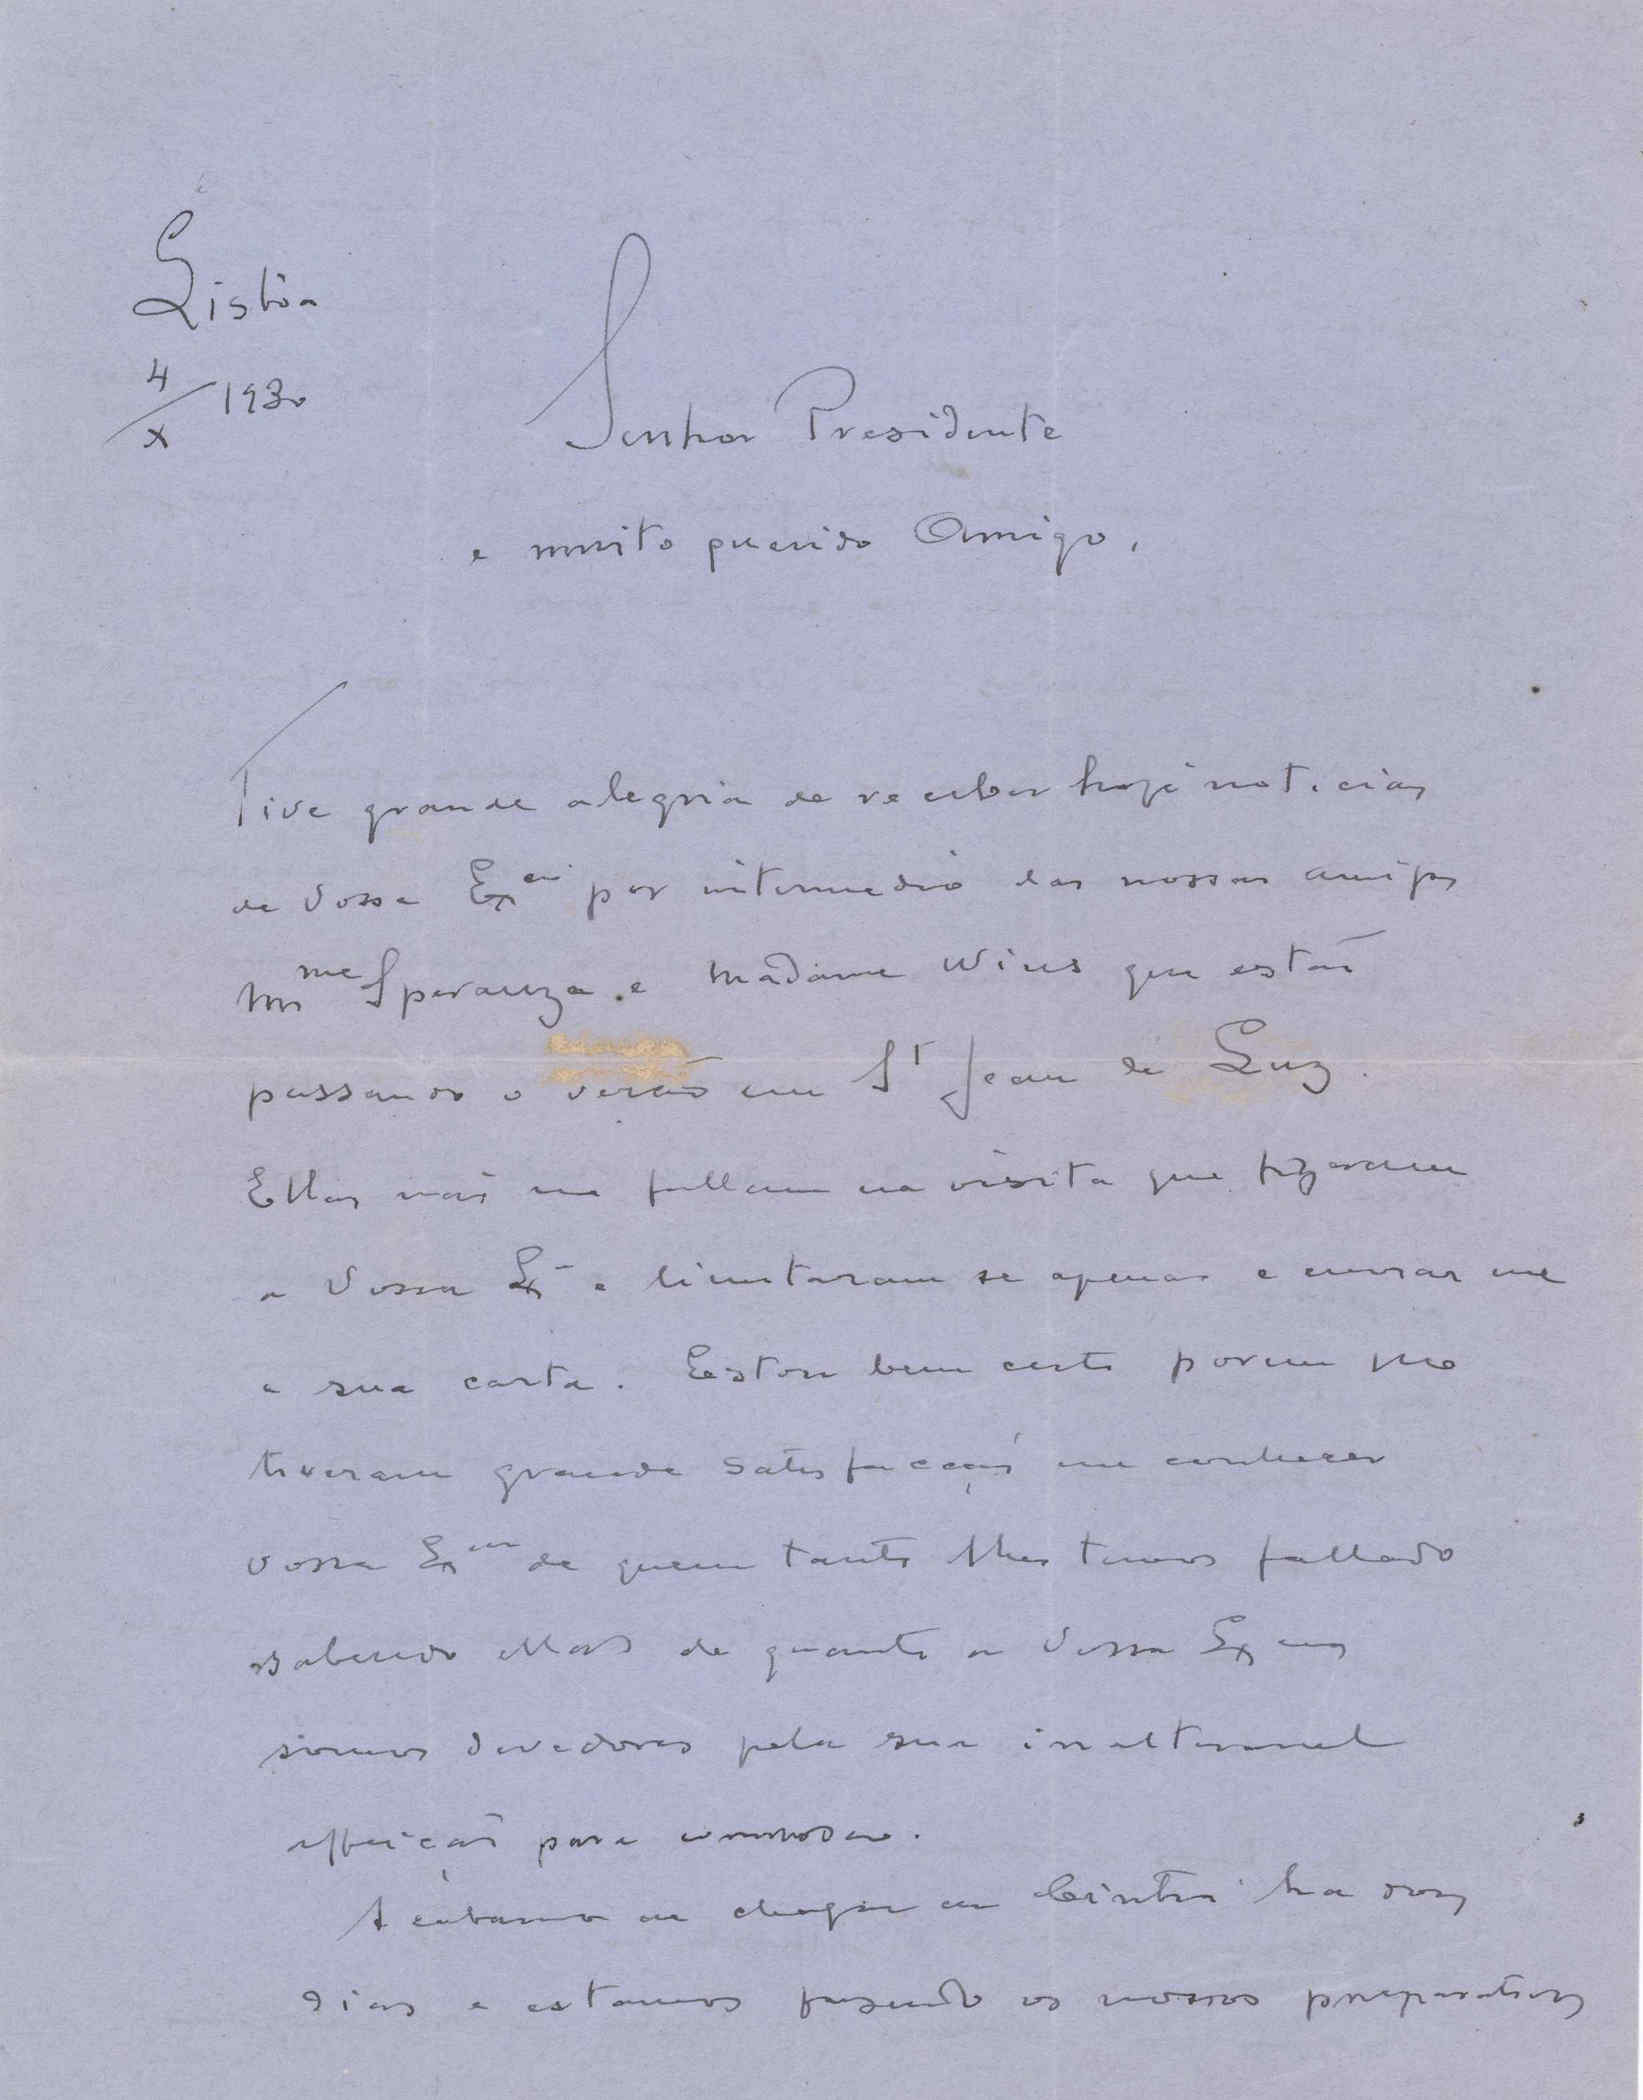 Lisbôa
4/X 1930
Senhor Presidente
e muito querido Amigo,
Tive grande alegria de receber hoje noticias
de Vossa Ex.cia por intermedio das nossas amigas
Mme Speranza e Madame Wins que estão
passando o verão em St Jean de Luz.
Ellas não me fallam na visita que fizeram
a Vossa Ex e limitaram se apenas a enviar me
a sua carta. Estou bem certo porem que
tiveram grande satisfacção em conhecer
Vossa Ex.cia de quem tanto lhes temos fallado
sabendo ellas de quanto a Vossa Ex.cia
somos devedores pela sua inalteravel
affeição para comnosco.
Acabamos de chegar de Cintra ha dois
dias e estamos fazendo os nossos preparativos